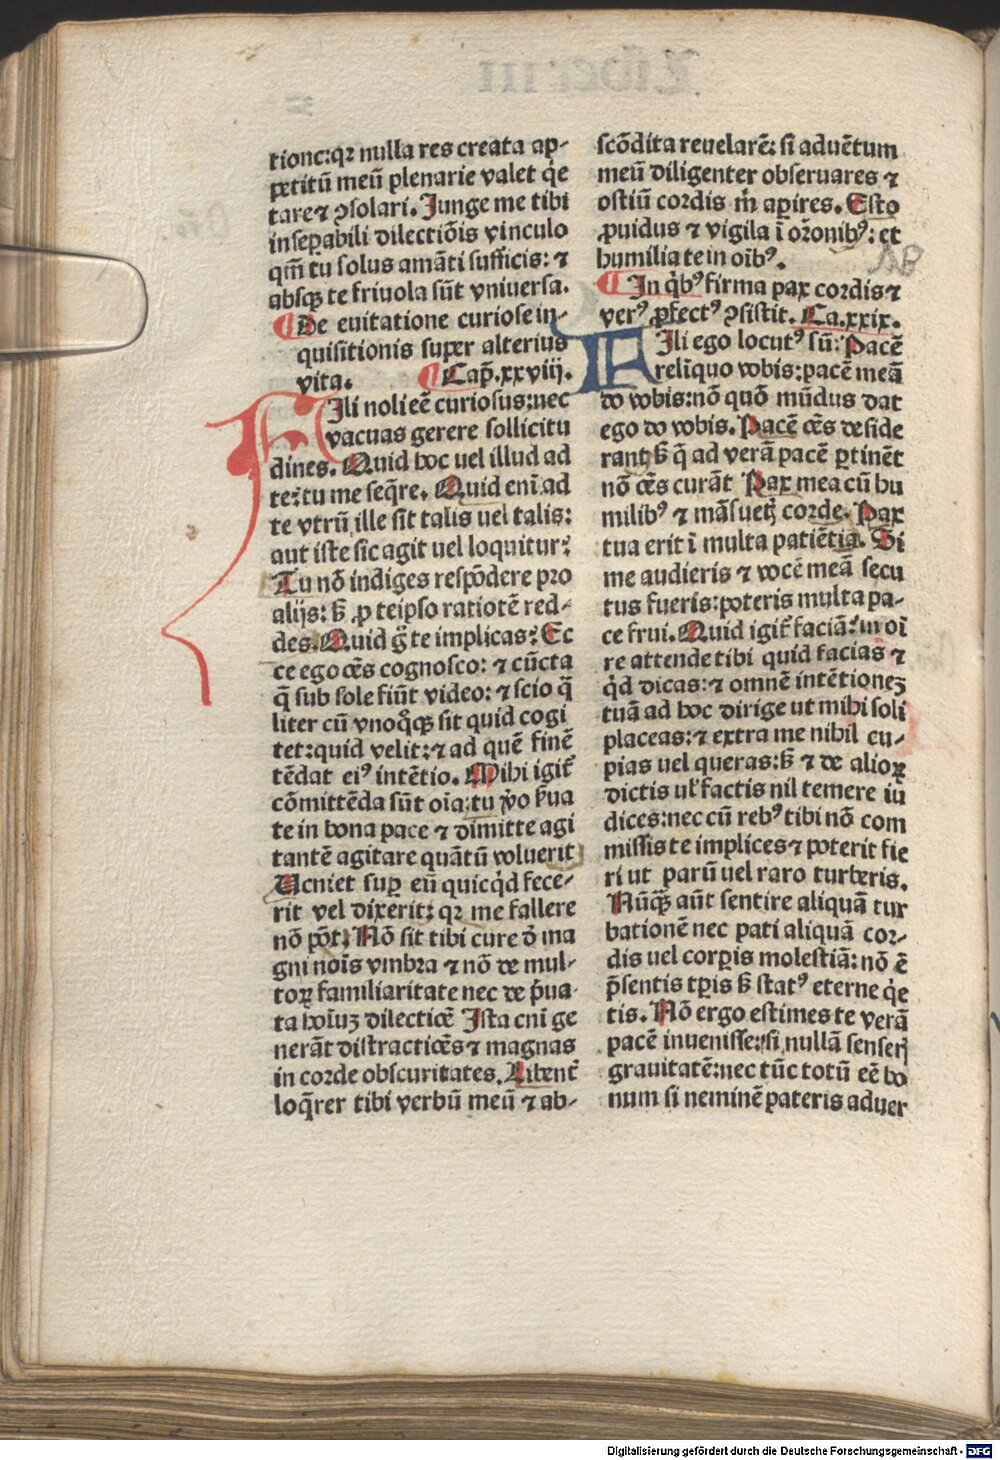 tione:qꝛ nulla res creata ap-
petitū meū plenarie valet q̇e
tare ⁊ ꝯsolari. Junge me tibi
inseꝑabili dilectiōis vinculo
qm̄ tu solus amāti sufficis: ⁊
absqꝫ te friuola sūt vniuersa.
De euitatione curiose in-
quisitionis super alterius
vita. Cap̄.xxviij.
Fili noli eē curiosus:nec
vacuas gerere sollicitu
dines. Quid hoc uel illud ad
te: tu me seq̄re. Quid enī ad
te vtrū ille sit talis uel talis:
aut iste sic agit uel loquitur:
Tu nō indiges respōdere pro
alijs: ꝫ ꝓ teipso ratiotē red-
des. Quid g̊ te implicas: Ec
ce ego oēs cognosco: ⁊ cūcta
q̄ sub sole fiūt video: ⁊ scio q̄
liter cū vnoq̊qꝫ sit quid cogi
tet:quid velit:⁊ ad quē finē
tēdat eiꝰ intētio. Mihi igit᷑
cōmittēda sūt oīa:tu v̊o ẜua
te in bona pace ⁊ dimitte agi
tantē agitare quātū voluerit
Veniet suꝑ eū quicq̇d fece-
rit vel dixerit: qꝛ me fallere
nō pōt. Nō sit tibi cure ð ma
gni noīs vmbra ⁊ nō de mul-
toꝝ familiaritate nec de p̄ua-
ta hoīuꝫ dilectiōe Ista enī ge
nerāt distractiōes ⁊ magnas
in corde obscuritates. Libent᷑
loq̄rer tibi verbū meū ⁊ ab-
scōdita reuelarē: si aduētum
meū diligenter obseruares ⁊
ostiū cordis m̄ aperires. Esto
ꝓuidus ⁊ vigila ī oro̅nibꝰ: et
humilia te in oībꝰ.
In q̇bꝰ firma pax cordis ⁊
verꝰ ꝓfectꝰ ꝯsistit. Ca.xxix.
Fili ego locutꝰ sū: Pacē
relīquo vobis:pacē meā
do vobis:nō quō mūdus dat
ego do vobis. Pacē oēs deside
rant ꝫ q̄ ad verā pacē ꝑtinēt
nō oēs curāt Pax mea cū hu
milibꝰ ⁊ māsuetꝭ corde. Pax
tua erit ī multa patiētia. Si
me audieris ⁊ vocē meā secu
tus fueris:poteris multa pa-
ce frui. Quid igit᷑ faciā: in oī
re attende tibi quid facias ⁊
q̇d dicas:⁊ omnē intētioneꝫ
tuā ad hoc dirige ut mihi soli
placeas:⁊ extra me nihil cu-
pias uel queras:ꝫ ⁊ de alioꝝ
dictis ul̕ factis nil temere iu
dices:nec cū rebꝰ tibi nō com
missis te implices ⁊ poterit fie
ri ut parū uel raro turberis.
Nūqꝫ aūt sentire aliquā tur
bationē nec pati aliquā cor-
dis uel corꝑis molestiā: nō ē
p̄sentis tꝑis ꝫ statꝰ eterne q̇e
tis. Nō ergo estimes te verā
pacē inuenisse:si nullā senserꝭ
grauitatē:nec tūc totū eē bo
num si neminē pateris aduer
Digitalisierung gefördert durch die Deutsche Forschungsgemeinschaft - DFG